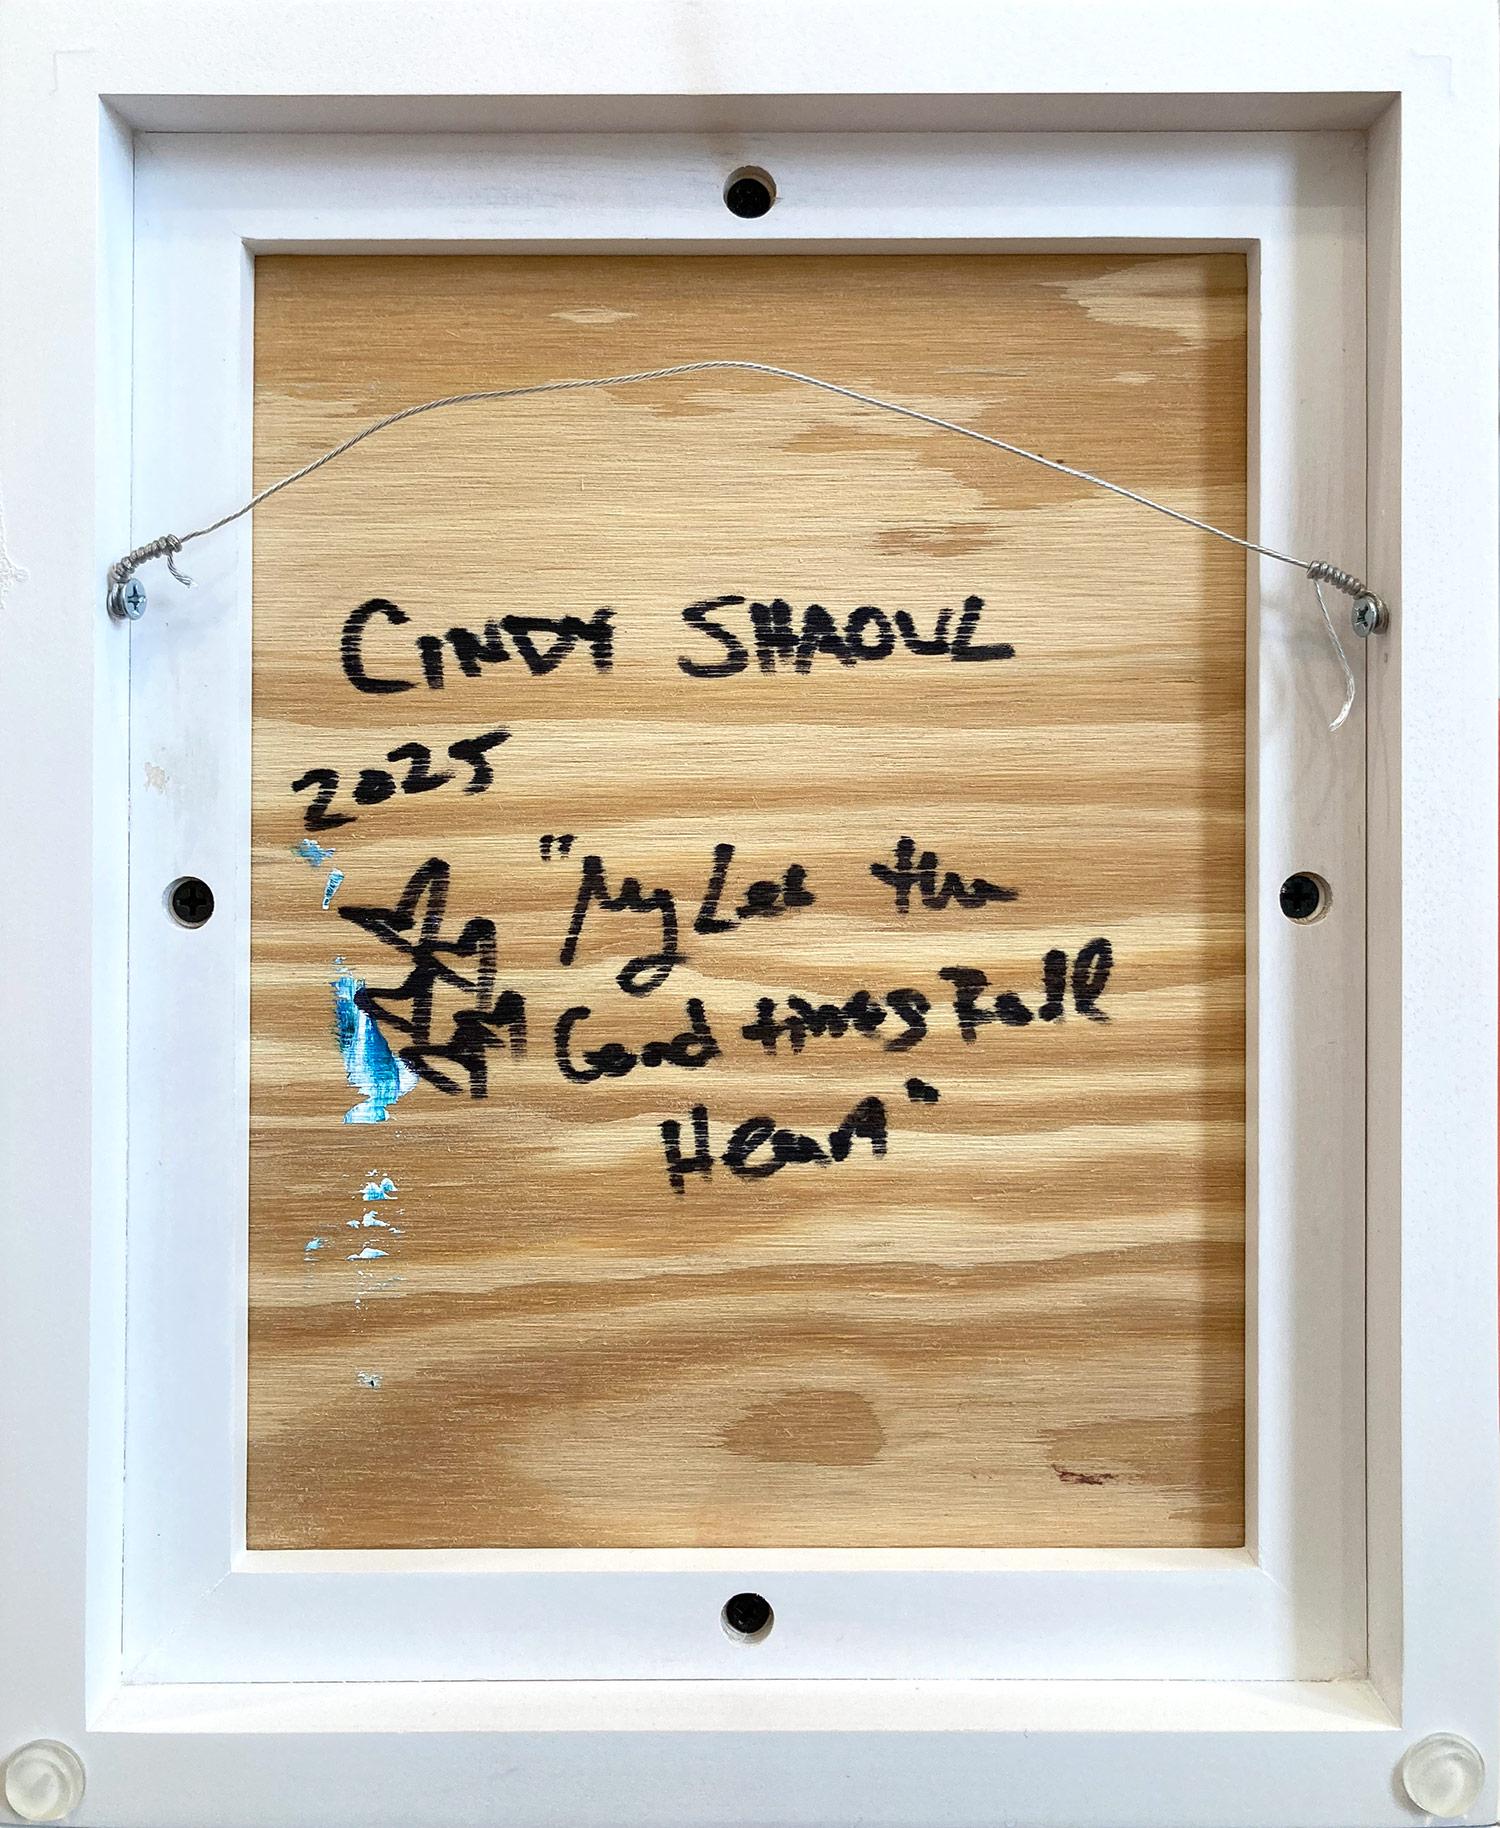 CINDY SHAOUL
2025
"My Lee the
Good times Roll
Heart"